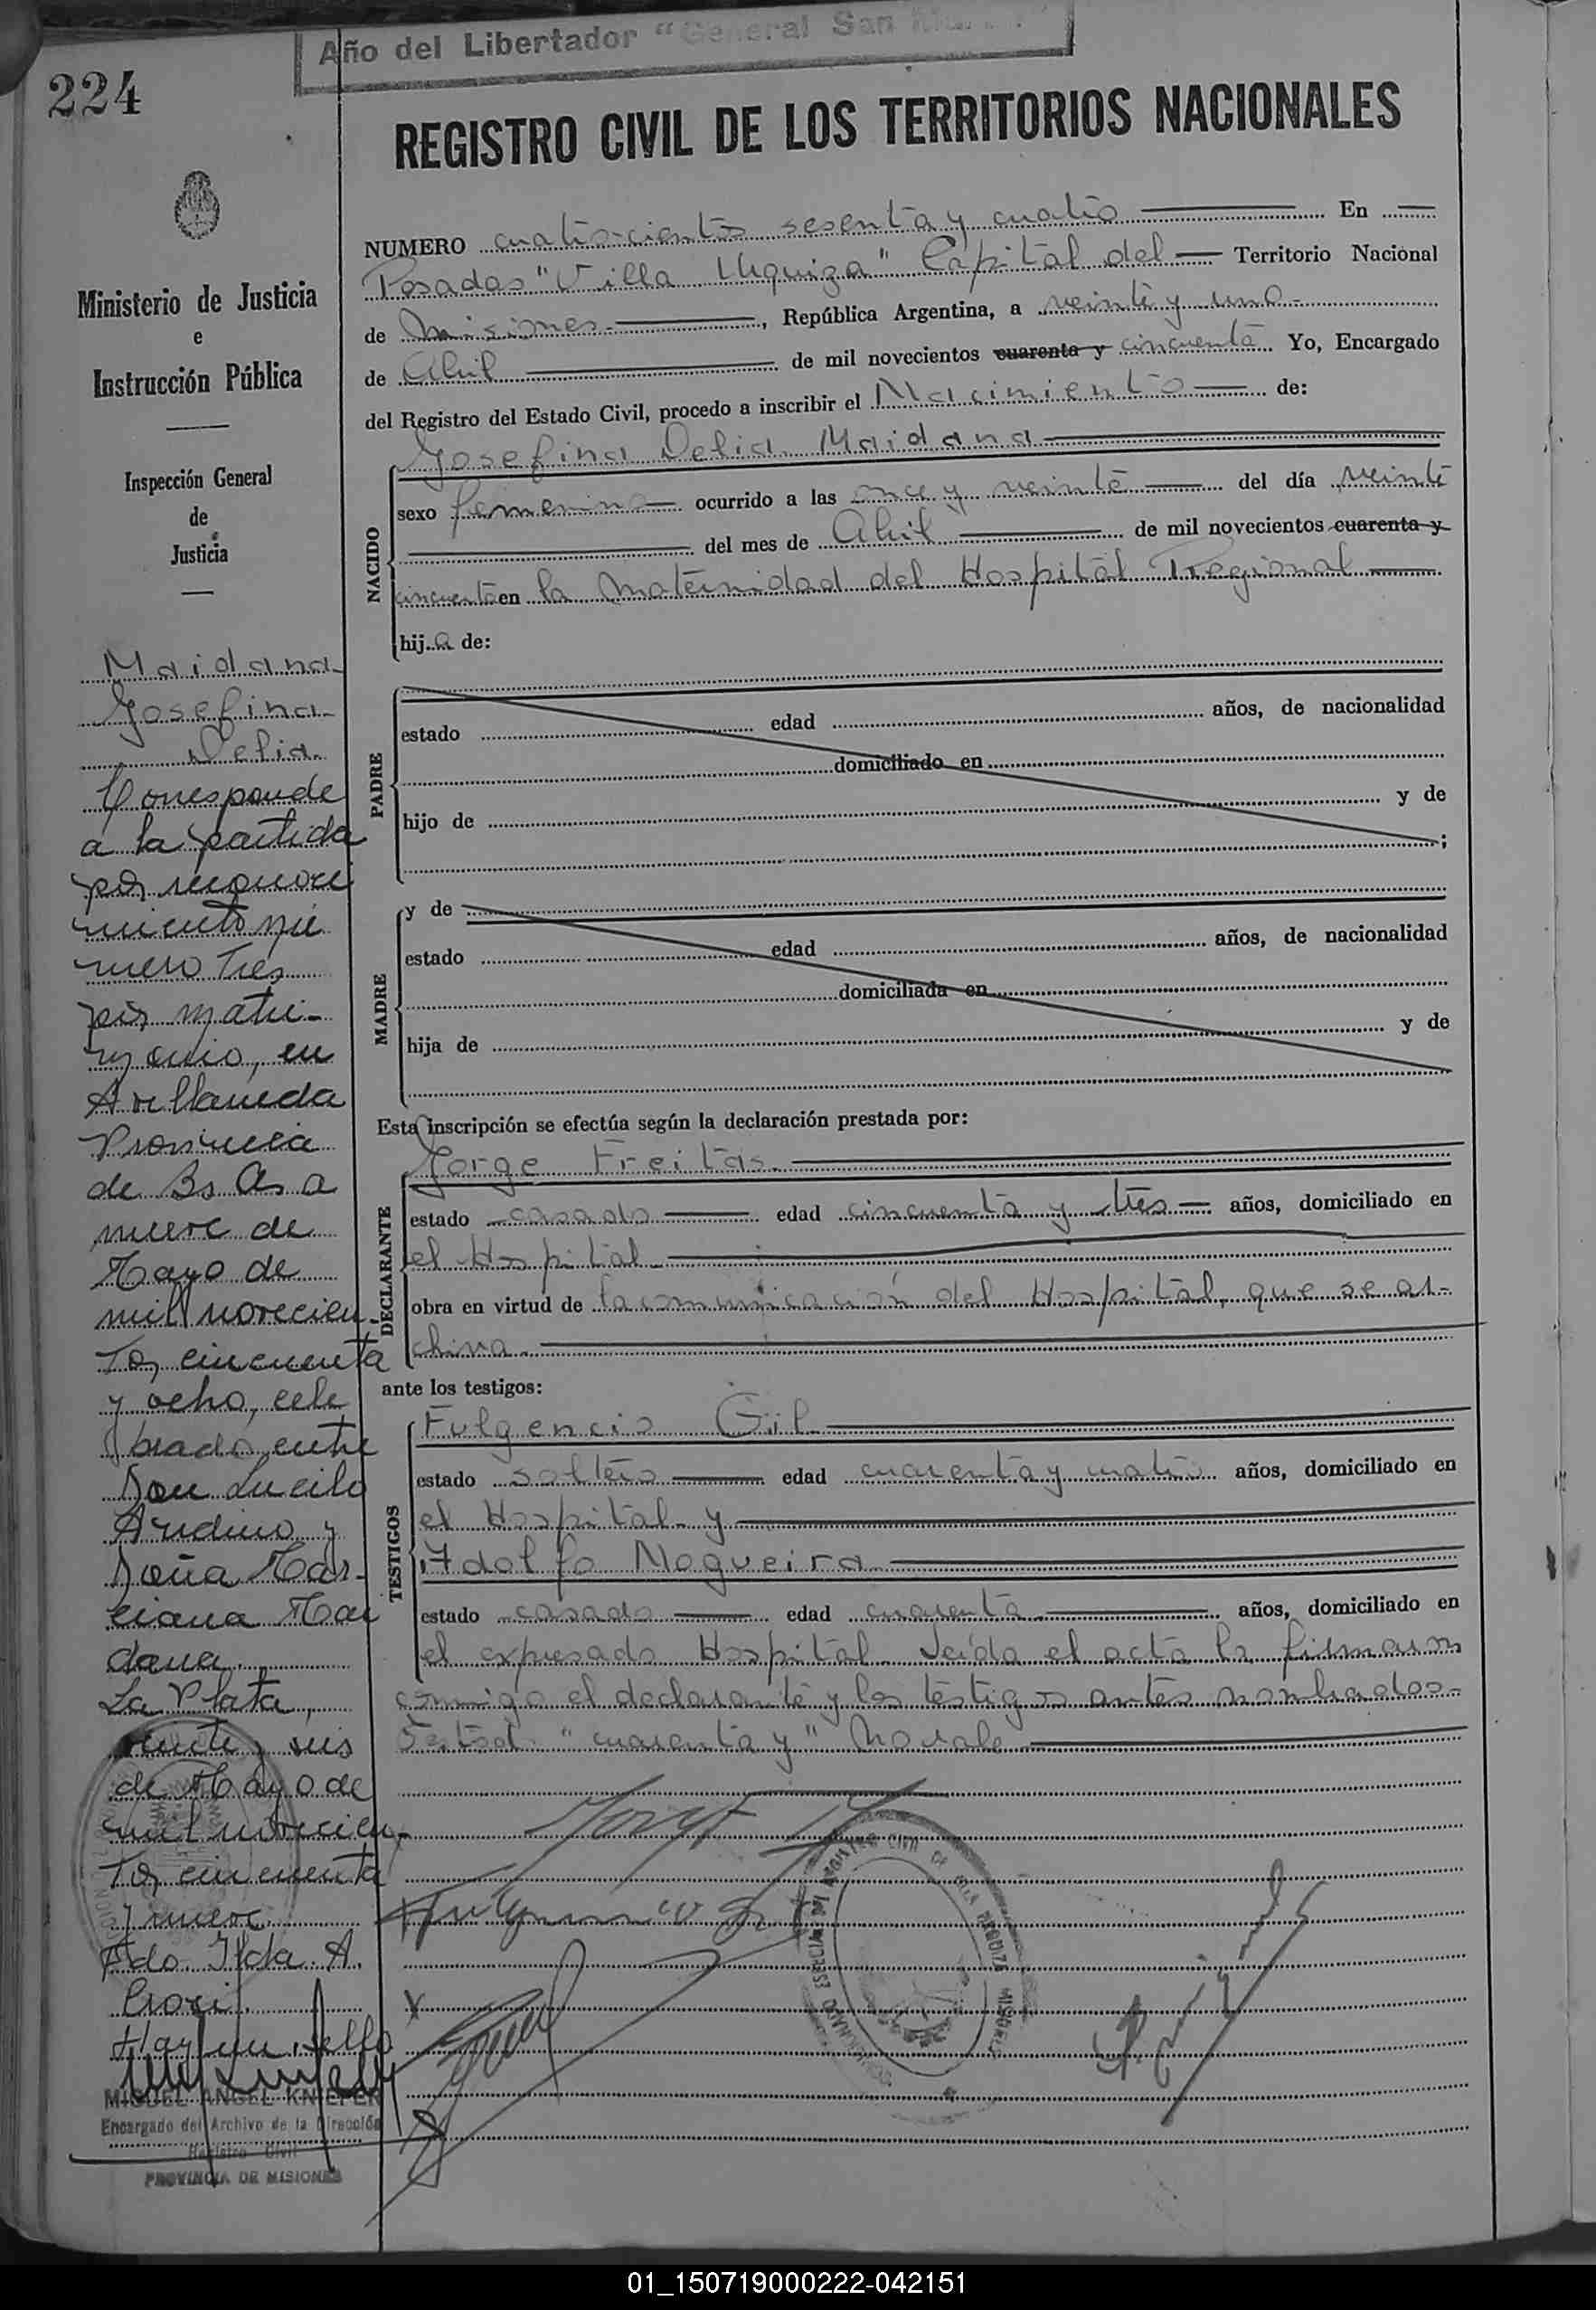 Año del Libertador "General San
224
REGISTRO CIVIL DE LOS TERRITORIOS NACIONALES
NUMERO cuatrocientos sesenta y cuatro En
Posadas "Villa Urquiza" Capital del Territorio Nacional
de Misiones.-, República Argentina, a veinte y uno.-
de Abril de mil novecientos cuarenta y cincuenta Yo, Encargado
del Registro del Estado Civil, procedo a inscribir el Nacimiento de:
Josefina Delia Maidana
NACIDO
sexo femenino ocurrido a las once y veinte del día veinte
del mes de Abril de mil novecientos cuarenta y
cincuenta en la Maternidad del Hospital Regional
hija de:
PADRE
estado edad años, de nacionalidad
domiciliado en
hijo de y de
;
MADRE
y de
estado edad años, de nacionalidad
domiciliada en
hija de y de
Esta inscripción se efectúa según la declaración prestada por:
Jorge Freitas.
DECLARANTE
estado casado edad cincuenta y tres años, domiciliado en
el Hospital
obra en virtud de la comunicación del Hospital, que se ar-
chiva.
ante los testigos:
Fulgencio Gil
TESTIGOS
estado soltero edad cuarenta y cuatro años, domiciliado en
el Hospital y
Adolfo Nogueira
estado casado edad cuarenta años, domiciliado en
el expresado Hospital. Leída el acta la firmaron
conmigo el declarante y los testigos antes nombrados.-
Testad: "cuarenta y" No vale
Ministerio de Justicia
e
Instrucción Pública
Inspección General
de
Justicia
Maidana
Josefina
Delia.
Corresponde
a la partida
por reconoci
miento nú
mero Tres
por matri-
monio, en
Avellaneda
Provincia
de Bs As a
nueve de
Mayo de
mil novecien-
tos cincuenta
y ocho, cele
brado entre
Don Lucilo
Andino y
Doña Mar-
ciana Mai
dana.
La Plata,
veinte y seis
de Mayo de
mil novecien-
tos cincuenta
y nueve
Fdo. Ilda A.
Hay un sello
MIGUEL ANGEL KNIEPER
Encargado del Archivo de la Dirección
Registro Civil
PROVINCIA DE MISIONES
01_150719000222-042151